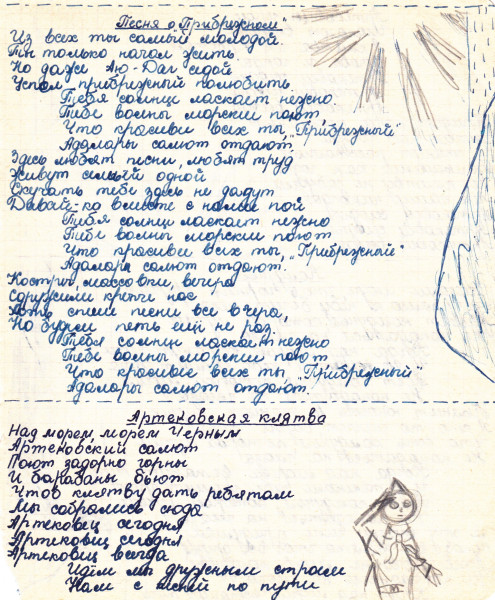 Песня о „Прибрежном"
Из всех ты самый молодой.
Ты только начал жить
Но даже Аю-Даг седой
Успел прибрежный полюбить.
Тебя солнце ласкает нежно
Тебе волны морские поют
Что красивей всех ты „Прибрежный"
Адалары салют отдают.
Здесь любят песни, любят труд
Живут семьей одной
Скучать тебе здесь не дадут
Давай-ка вместе с нами пой
Тебя солнце ласкает нежно
Тебе волны морские поют
Что красивей всех ты, „Прибрежный"
Адалары салют отдают.
Костры, массовки, вечера
Сдружили крепче нас
Хоть спели песни все вчера,
Но будем петь ещё не раз.
Тебя солнце ласкает нежно
Тебе волны морские поют
Что красивее всех ты „Прибрежный"
Адалары салют отдают.
Артековская клятва
Над морем, морем Черным
Артековский салют
Поют задорно горны
И барабаны бьют
Чтоб клятву дать ребятам
Мы собрались сюда
Артековец сегодня
Артековец сегодня
Артековец всегда
Идём мы дружным строем
Нам с песней по пути